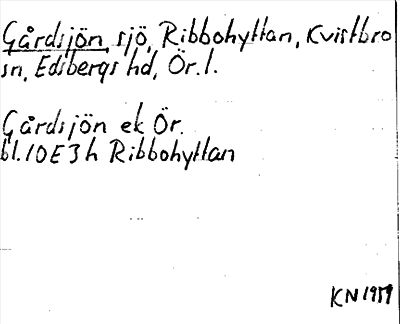 Gårdsjön, sjö, Ribbohyttan, Kvistbro
sn, Edsbergs hd, Ör. l.
Gårdsjön ek Ör.
bl. 10E3h Ribbohyttan
KN 1959